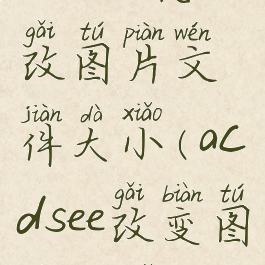 gǎi tú piàn wén
改图片文
jiàn dà xiǎo
件大小(ac
gǎi biàn tú
dsee改变图